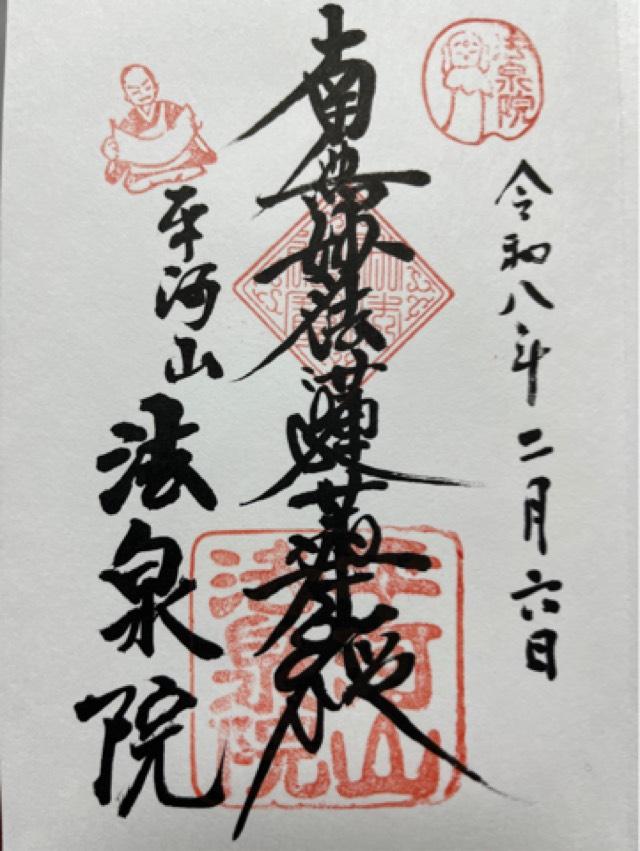 法泉院
令和八年二月六日
南無妙法蓮華経
平河山
法泉院
平河山
法泉院